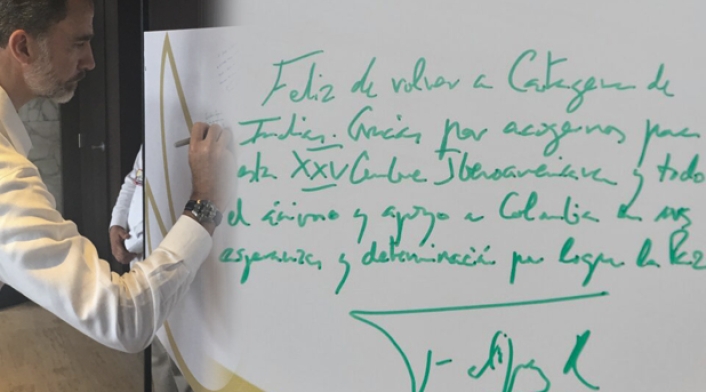 Feliz de volver a Cartagena de
Indias. Gracias por acogernos para
esta XXV Cumbre Iberoamericana y todo
el ánimo y apoyo a Colombia en su
esperanza y determinación por lograr la Paz
Felipe R